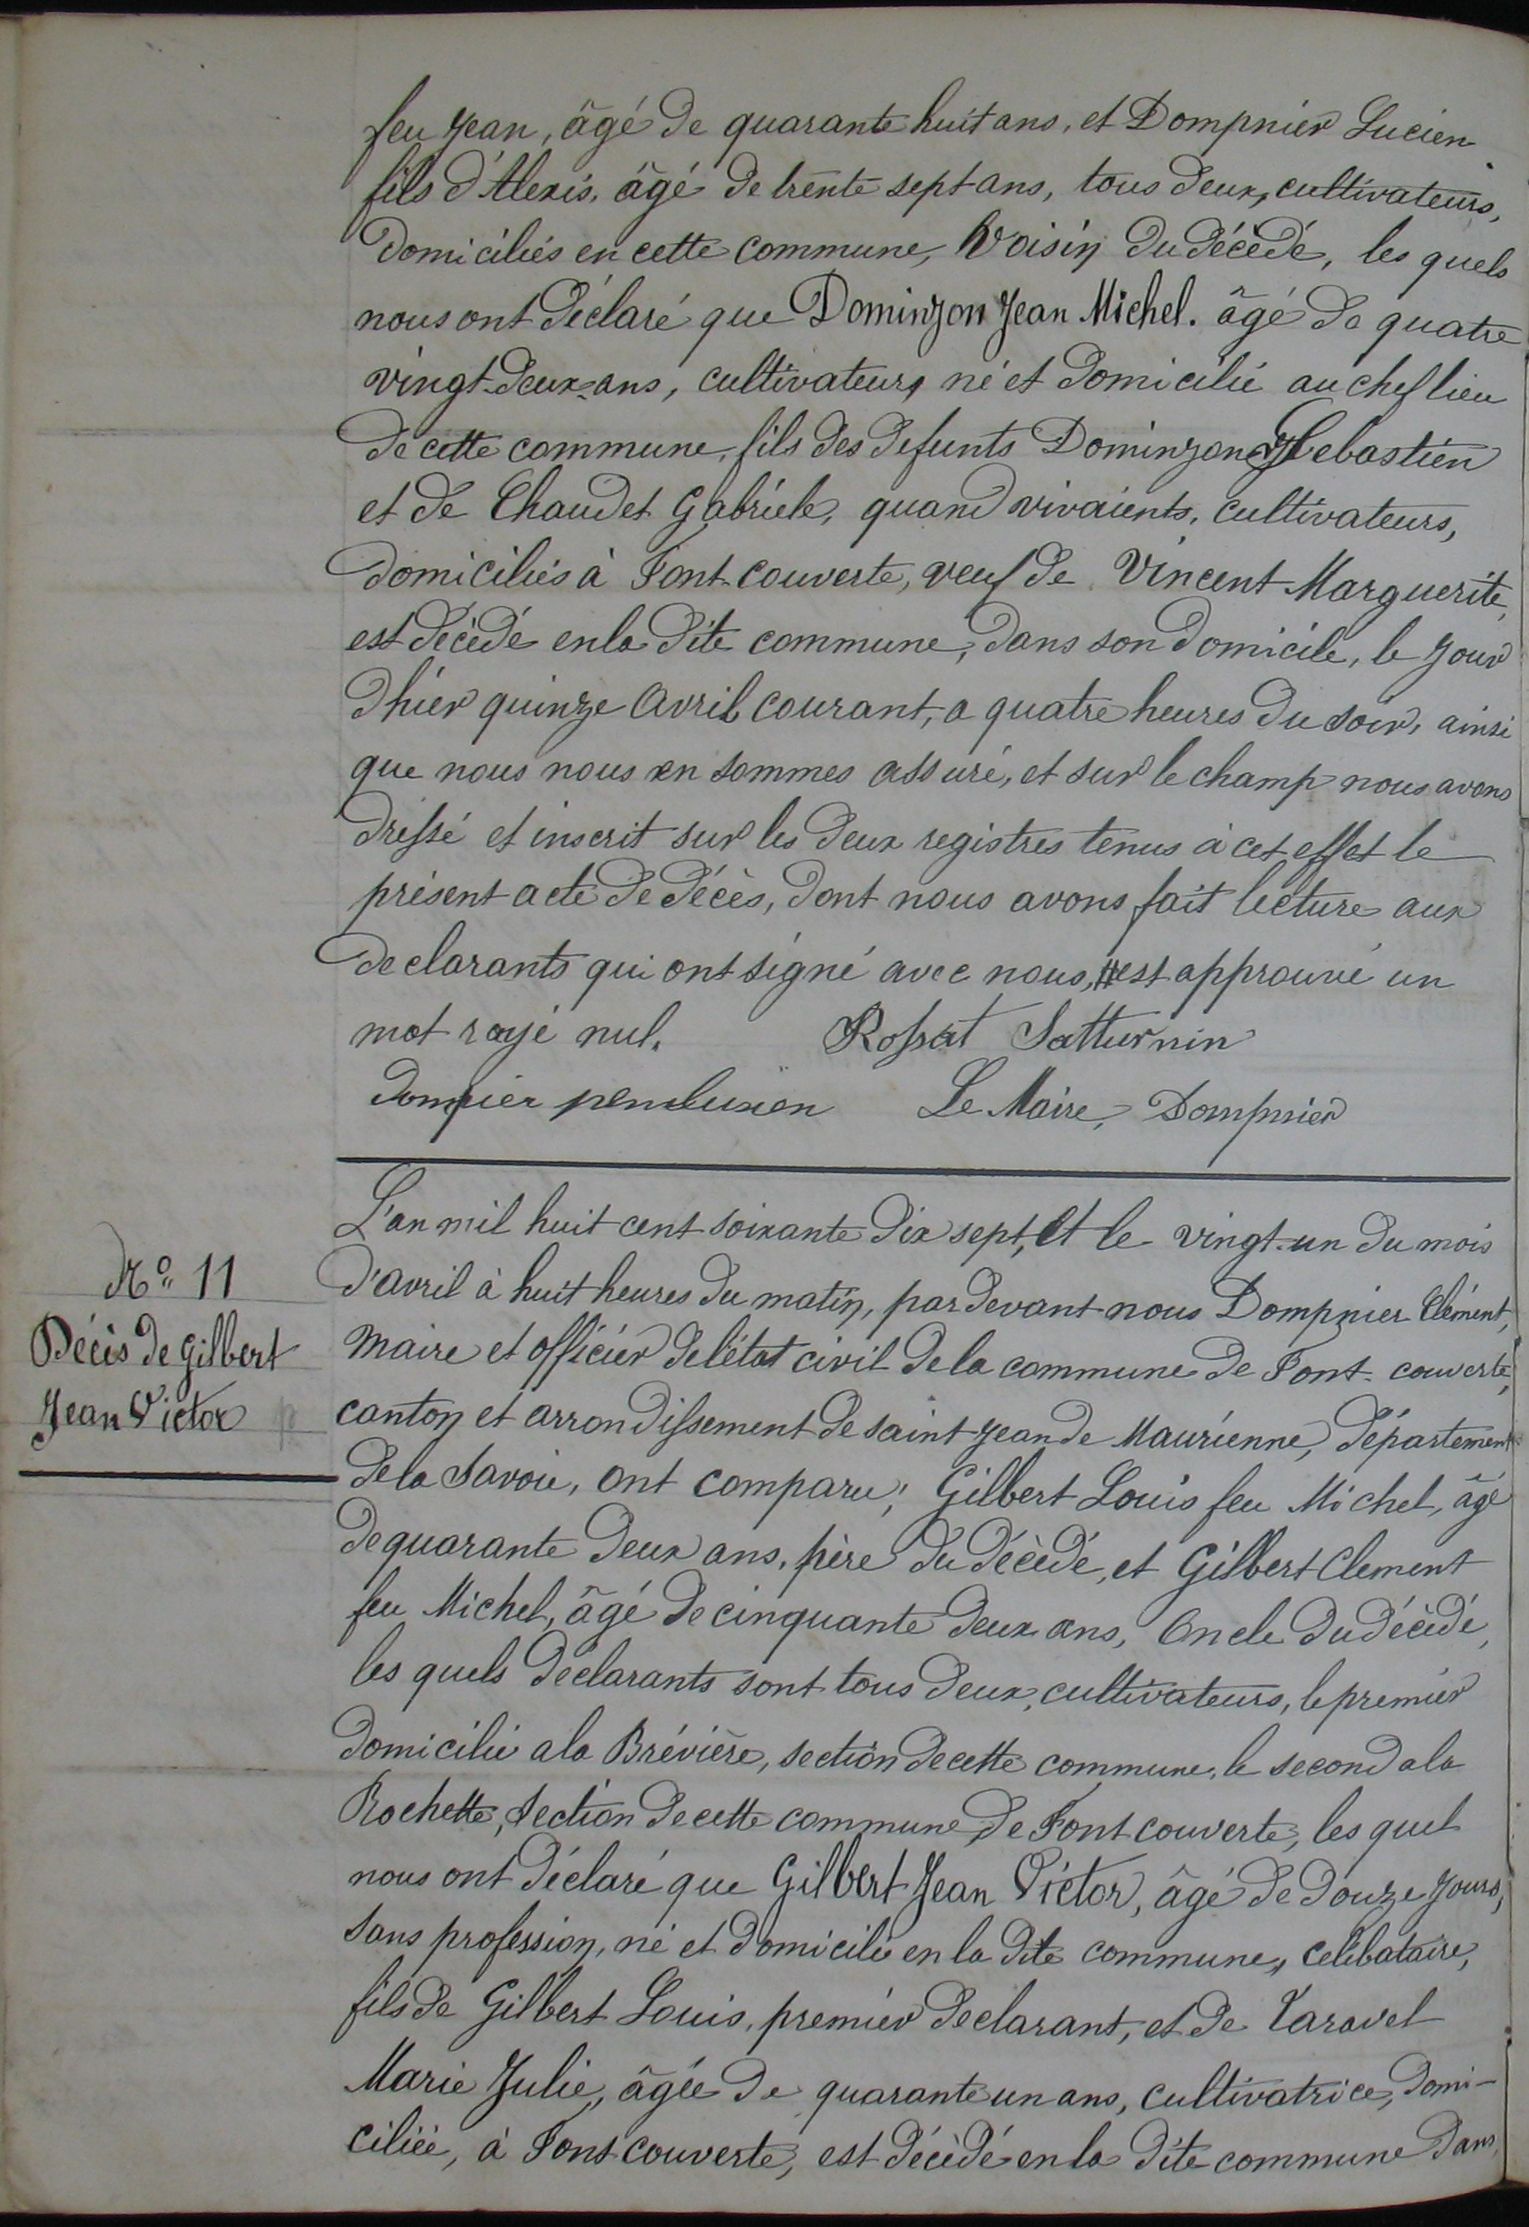 feu Jean, âgé de quarante huit ans, et Dompnier Lucien
fils d'Alexis, âgé de trente sept ans, tous deux, cultivateurs,
domiciliés en cette commune, voisin du décédé, les quels
nous ont déclaré que Dominjon Jean Michel. âgé de quatre
vingt-deux-ans, cultivateur, né et domicilié au chef lieu
de cette commune, fils des defunts Dominjon Sebastien
et de Chaudet Gabriele, quand vivaients, cultivateurs,
domiciliés à Font-couverte, veuf de Vincent Marguerite,
est décédé en la dite commune, dans son domicile, le jour
d'hier quinze avril courant, a quatre heures du soir, ainsi
que nous nous en sommes assuré, et sur le champ nous avons
dressé et inscrit sur les deux registres tenus à cet effet le
présent acte de décès, dont nous avons fait lecture aux
declarants qui ont signé avec nous, est approuvé un
mot rayé nul. Rossat Satturnin
Le Maire, Dompnier
L'an mil huit cent soixante dix sept, et le vingt-un du mois
N° 11
d'avril à huit heures du matin, par devant nous Dompnier Clément,
Décès de Gilbert
maire et officier de l'état civil de la commune de Font-couverte,
Jean Victor
canton et arrondissement de saint-Jean de Maurienne, département
de la Savoie, ont comparu; Gilbert Louis feu Michel, âgé
de quarante deux ans, père du décédé, et Gilbert Clement
feu Michel, âgé de cinquante deux ans, Oncle du décédé,
les quels déclarants sont tous deux, cultivateurs, le premier
domicilié a la Brévière, section de cette commune, le second a la
Rochette, section de cette commune de Font couverte, les quel
nous ont déclaré que Gilbert Jean Victor, âgé de douze jours,
sans profession, né et domicilié en la dite commune, celibataire,
fils de Gilbert Louis, premier declarant, et de Taravel
Marie Julie, âgée de quarante un ans, cultivatrice, domi-
ciliée, à Font couverte, est décédé en la dite commune dans